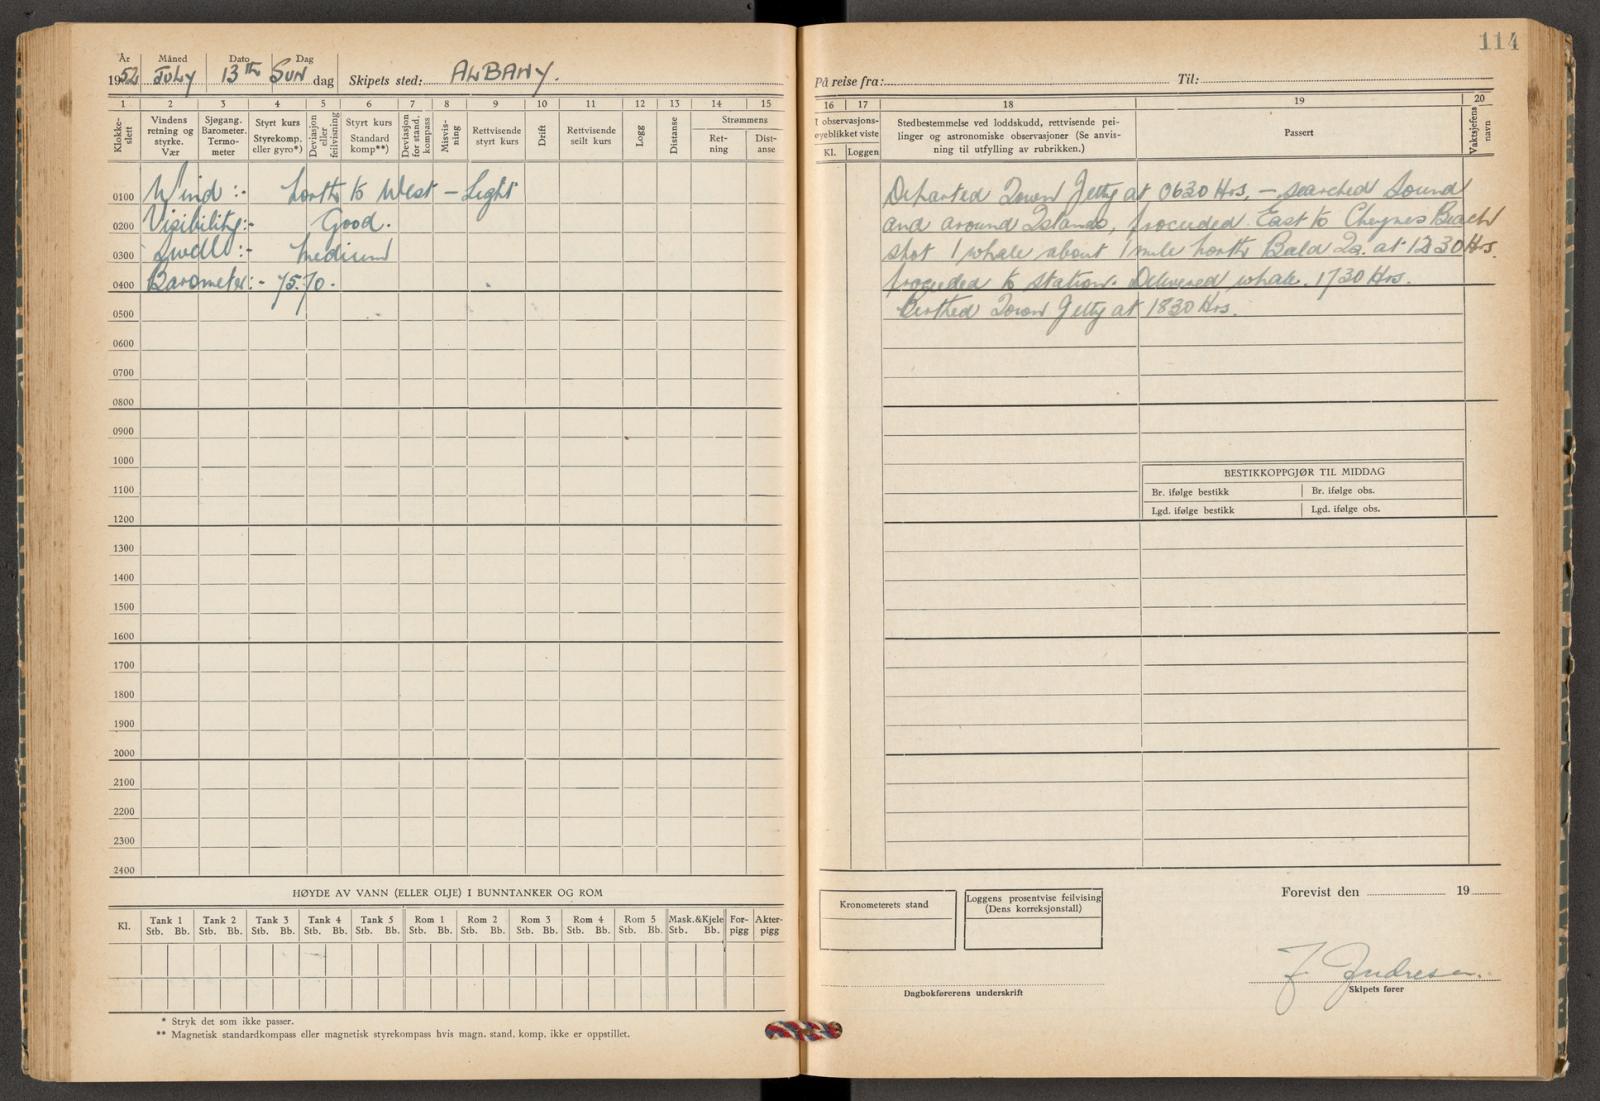 114
År Måned Dato Dag
1952 JULY 13TH SUN dag Skipets sted: ALBANY.
På reise fra: Til:
1 2 3 4 5 6 7 8 9 10 11 12 13 14 15
16 17 18 19 20
Klokkeslett
Vindens retning og styrke. Vær
Sjøgang. Barometer. Termometer
Styrt kurs Styrekomp. eller gyro*)
Deviasjon eller feilvisning
Styrt kurs Standard komp**)
Deviasjon for stand. kompass
Misvisning
Rettvisende styrt kurs
Drift
Rettvisende seilt kurs
Logg
Distanse
Strømmens
Retning
Distanse
I observasjonsøyeblikket viste
Kl. Loggen
Stedbestemmelse ved loddskudd, rettvisende peilinger og astronomiske observasjoner (Se anvisning til utfylling av rubrikken.)
Passert
Vaktsjefens navn
0100 Wind :- North to West - Light
0200 Visibility:- Good.
0300 Swell :- Medium
0400 Barometer:- 75.70.
0500
0600
0700
0800
0900
1000
1100
1200
1300
1400
1500
1600
1700
1800
1900
2000
2100
2200
2300
2400
Departed Town Jetty at 0630 Hrs. - searched Sound
and around Islands, proceeded East to Cheynes Beach
shot 1 whale about 1 mile North Bald Is. at 1230 Hrs.
proceeded to station. Delivered whale. 1730 Hrs.
Berthed Town Jetty at 1830 Hrs.
BESTIKKOPPGJØR TIL MIDDAG
Br. ifølge bestikk Br. ifølge obs.
Lgd. ifølge bestikk Lgd. ifølge obs.
HØYDE AV VANN (ELLER OLJE) I BUNNTANKER OG ROM
Kl. Tank 1 Tank 2 Tank 3 Tank 4 Tank 5 Rom 1 Rom 2 Rom 3 Rom 4 Rom 5 Mask.&Kjele For- Akter-
Stb. Bb. Stb. Bb. Stb. Bb. Stb. Bb. Stb. Bb. Stb. Bb. Stb. Bb. Stb. Bb. Stb. Bb. Stb. Bb. Stb. Bb. pigg pigg
* Stryk det som ikke passer.
** Magnetisk standardkompass eller magnetisk styrekompass hvis magn. stand. komp. ikke er oppstillet.
Kronometerets stand
Loggens prosentvise feilvising
(Dens korreksjonstall)
Dagbokførerens underskrift
Forevist den 19
F. Andresen.
Skipets fører